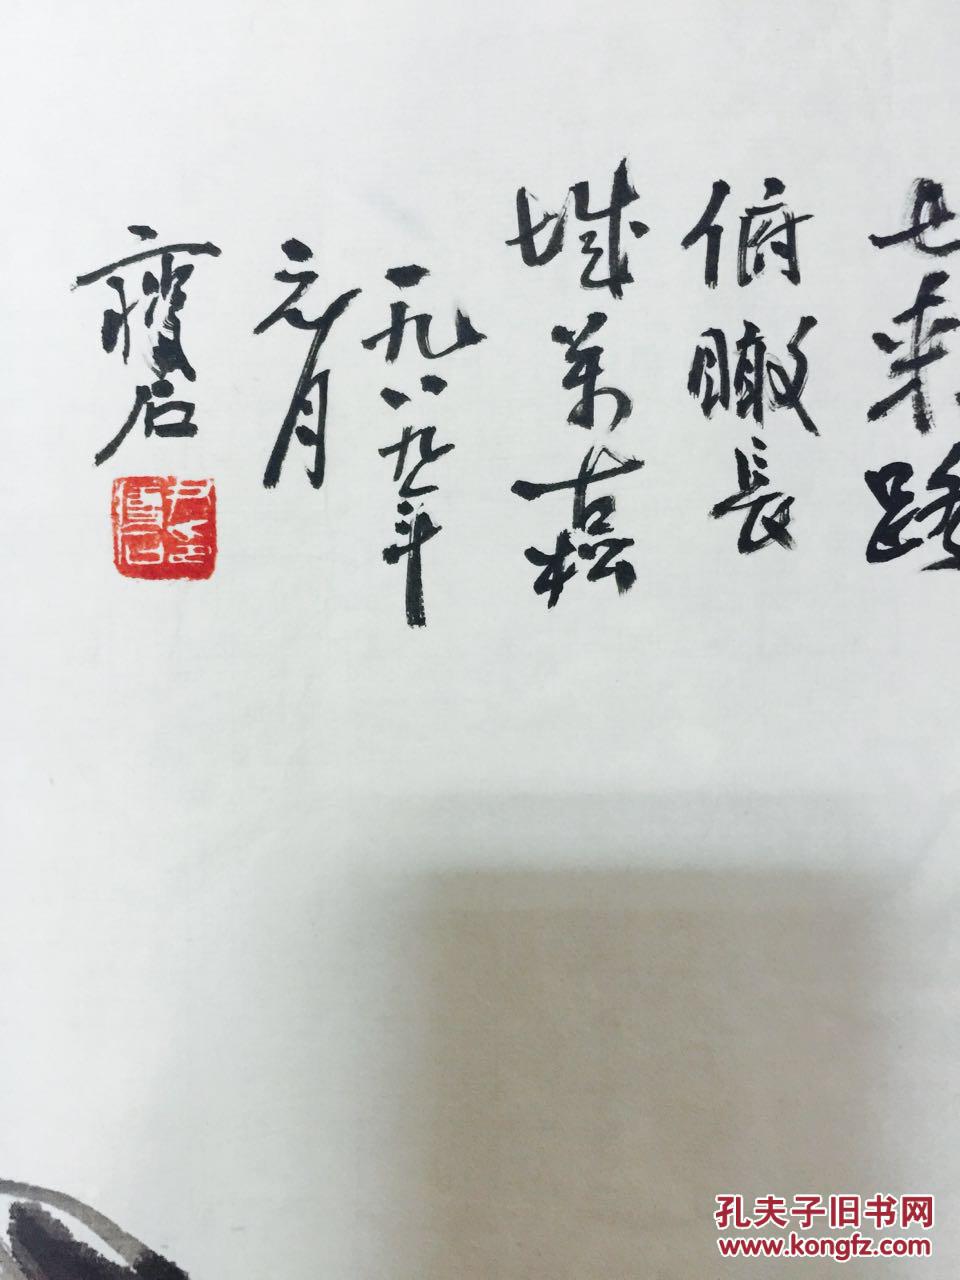 来路
俯瞰長
城萬
一九八九年
元月
瘦石
孔夫子旧书网
www.kongfz.com